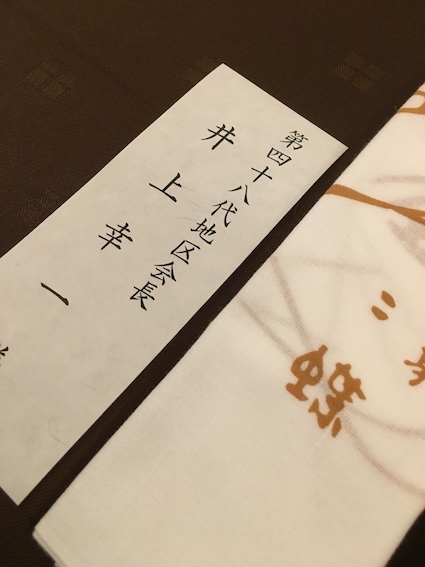 第四十八代地区会長
井上幸一
蝶